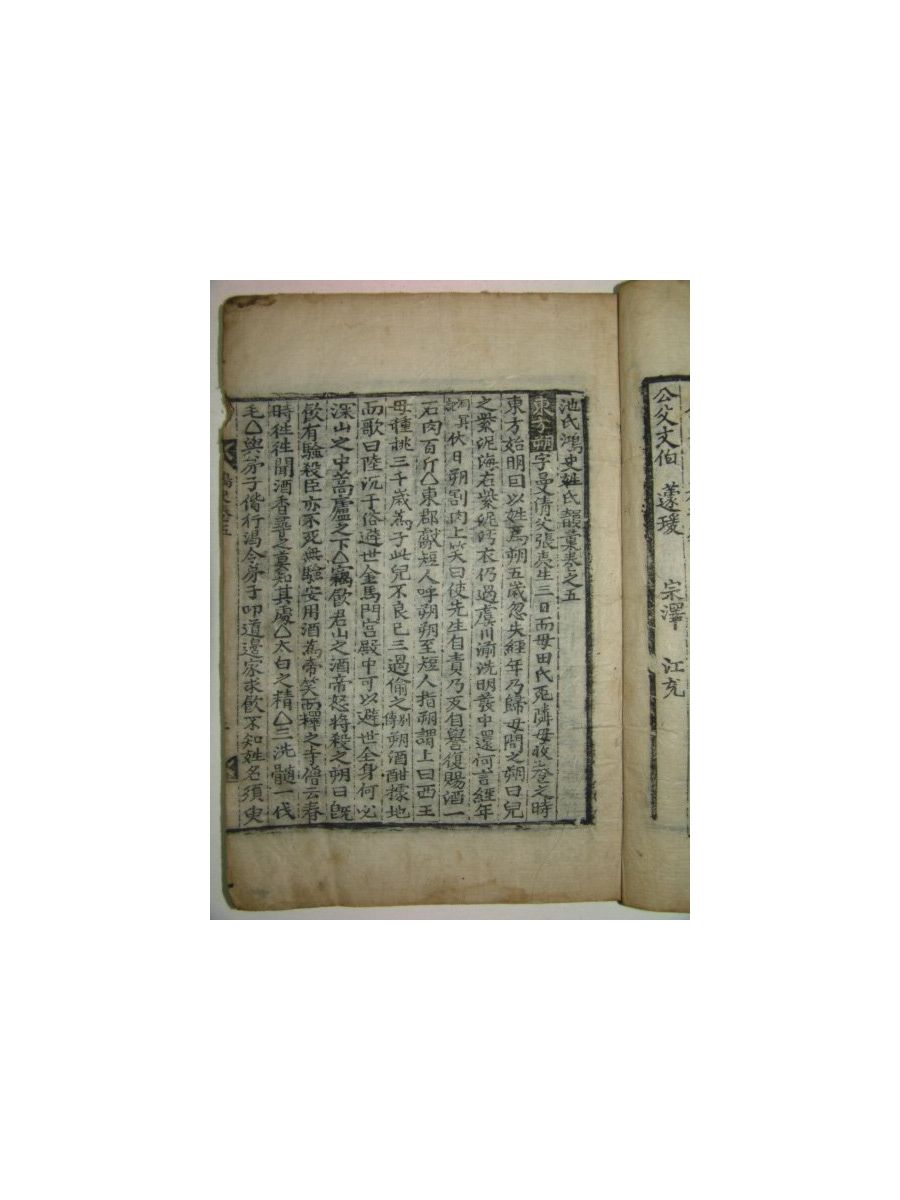 公父文伯 蘧瑗 宗澤 江充
池氏鴻史姓氏韻彙卷之五
東方朔字曼倩父張夷生三日而母田氏死隣母收養之時
東方始明曰以姓焉朔五歲忽失經年乃歸母問之朔曰兒
之紫泥海右紫泥汚衣仍過虞川湔洗明發中還何言經年
洞冥記伏日朔割肉上笑曰使先生自責乃反自譽復賜酒一
石肉百斤△東郡獻短人呼朔朔至短人指朔謂上曰西王
母種桃三千歲為子此兒不良已三過偷之別傳朔酒酣據地
而歌曰陸沉于俗避世金馬門宮殿中可以避世全身何必
深山之中蒿廬之下△竊飮君山之酒帝怒將殺之朔曰旣
飮有驗殺臣亦不死無驗安用酒為帝笑而釋之寺僧云春
時徃徃聞酒香尋之莫知其處△太白之精△三洗髓一伐
毛△與弟子偕行渴令弟子叩道邊家求飮不知姓名須臾